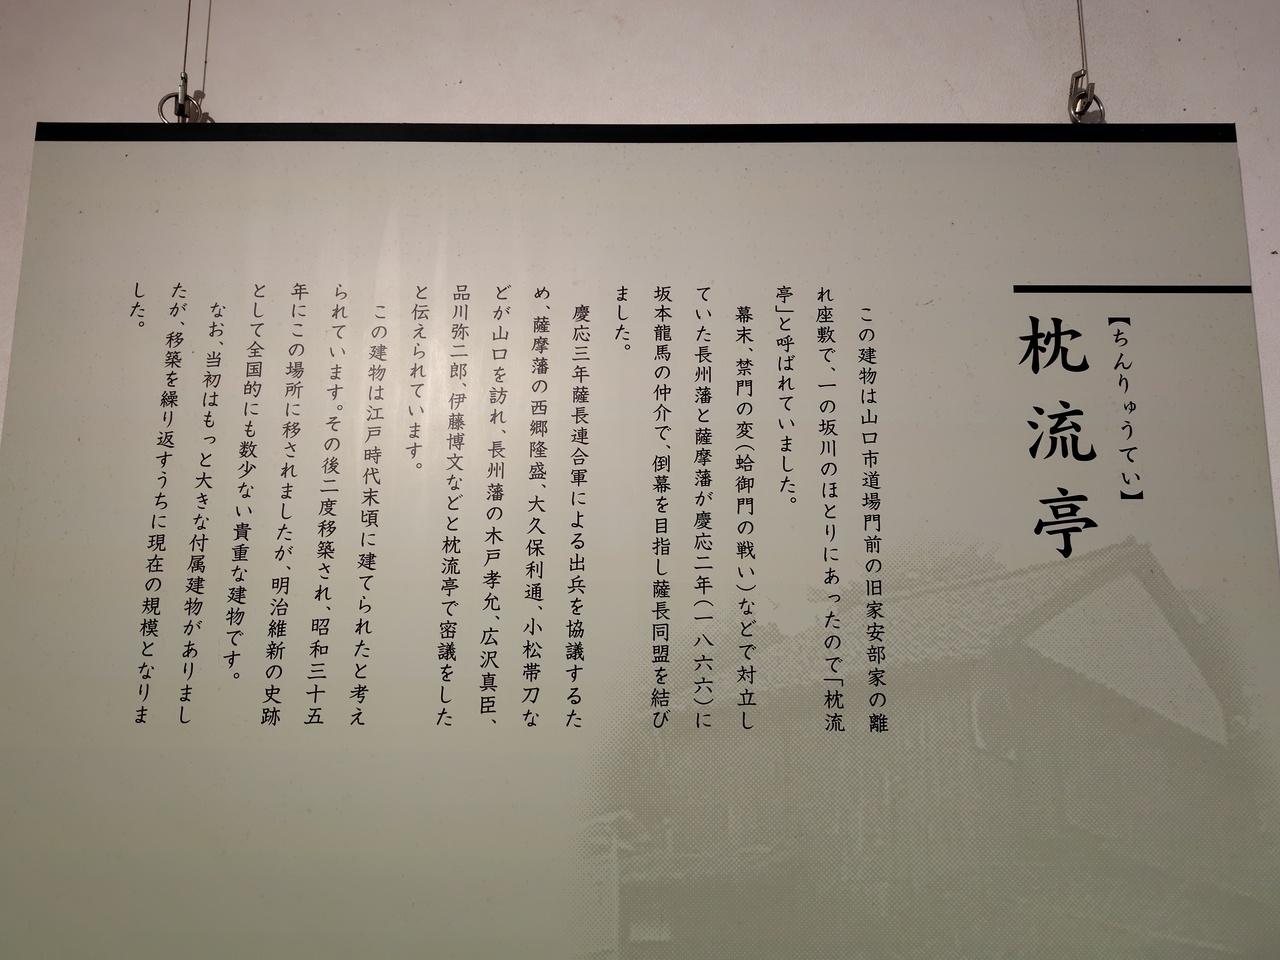 【ちんりゅうてい】
枕流亭
この建物は山口市道場門前の旧家安部家の離
れ座敷で、一の坂川のほとりにあったので「枕流
亭」と呼ばれていました。
幕末、禁門の変(蛤御門の戦い)などで対立し
ていた長州藩と薩摩藩が慶応二年(一八六六)に
坂本龍馬の仲介で、倒幕を目指し薩長同盟を結び
ました。
慶応三年薩長連合軍による出兵を協議するた
め、薩摩藩の西郷隆盛、大久保利通、小松帯刀な
どが山口を訪れ、長州藩の木戸孝允、広沢真臣、
品川弥二郎、伊藤博文などと枕流亭で密議をした
と伝えられています。
この建物は江戸時代末頃に建てられたと考え
られています。その後二度移築され、昭和三十五
年にこの場所に移されましたが、明治維新の史跡
として全国的にも数少ない貴重な建物です。
なお、当初はもっと大きな付属建物がありまし
たが、移築を繰り返すうちに現在の規模となりま
した。